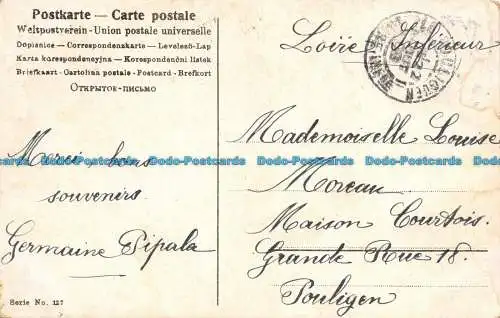 Postkarte — Carte postale
Weltpostverein - Union postale universelle
Dopisnice — Correspondenzkarte — Levelező-Lap
Karta korespondencyjna — Korespondenční lístek
Briefkaart - Cartolina postale - Postcard - Brefkort
ОТКРЫТОЕ-ПИСЬМО
Merci, bons
souvenirs.
Germaine Pipala
Serie No. 127
Loire Inférieur
Mademoiselle Louise
Moreau
Maison Courtois.
Grande Rue 18.
Pouligen
Dodo-Postcards Dodo-Postcards Dodo-Postcards Dodo-Postcards Dodo-Postcards